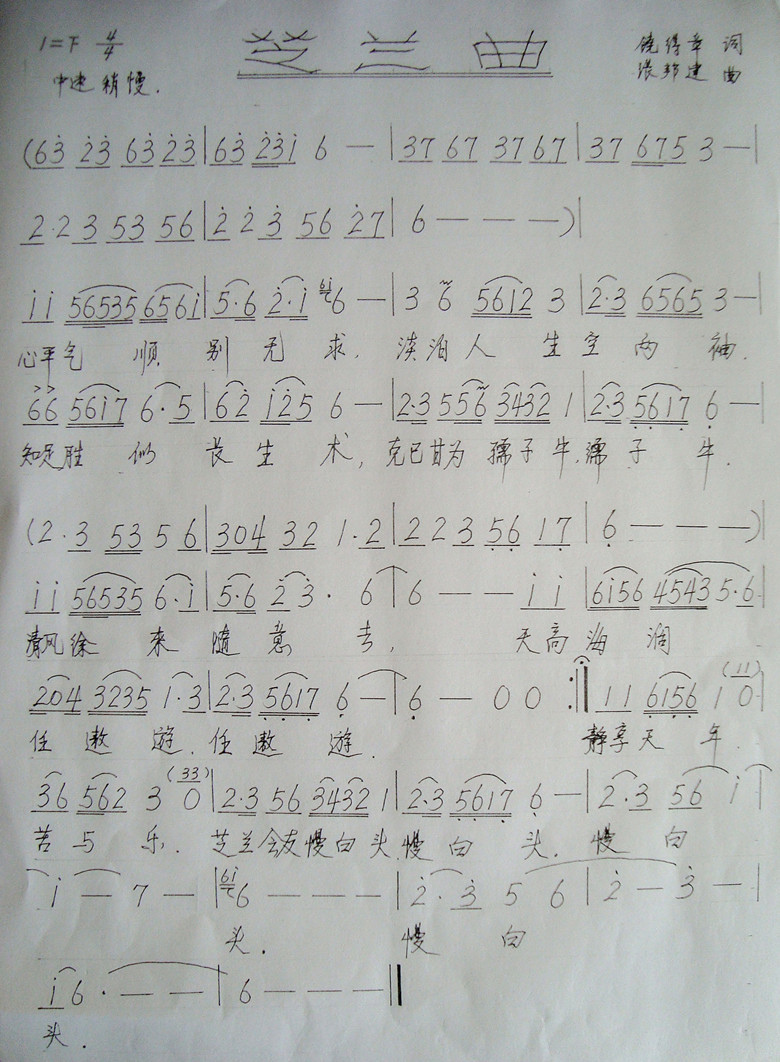 1=下 4/4 芝兰曲 饶得章 词
中速稍慢. 张邦建 曲
(63 23 63 23|63 231 6 —|37 67 37 67|37 675 3 —|
2·2 3 53 56|2 2 3 56 27|6 — — —)|
11 56535 6561|5·6 2·1 6 —|3 6 5612 3|2·3 6565 3 —|
心平气 顺 别 无 求. 淡泊人 生空 两 袖.
66 5617 6·5|62 125 6 —|2·3 556 3432 1|2·3 5617 6 —|
知足胜 似 长 生 术, 克己甘为 孺子牛.孺 子 牛.
(2·3 53 5 6|304 32 1·2|2 2 3 56 17|6 — — —)|
11 56535 6·1|5·6 23· 6|6 — — 1 1|6156 4543 5·6|
清风徐 来 随 意 去, 天高海 阔
204 3235 1·3|2·3 5617 6|6 — 0 0 :‖ 11 6156 1 0 (11)|
任 遨 游. 任 遨 游. 静享天 年.
36 562 3 0 (33)|2·3 56 3432 1|2·3 5617 6 —|2·3 56 1|
苦 与 乐. 芝兰会友慢白头.慢 白 头. 慢 白
1 — 7 —|6 — — —|2·3 5 6|2 — 3 —|
头. 慢 白
16· — —|6 — — —‖
头.